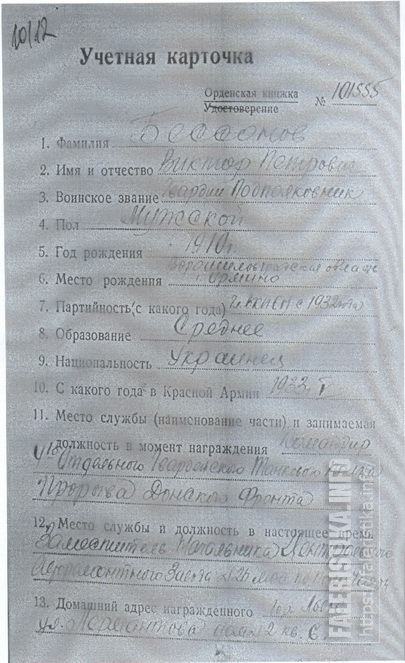 10/12
Учетная карточка
Орденская книжка
Удостоверение
№ 101555
1. Фамилия Бессонов
2. Имя и отчество Виктор Петрович
3. Воинское звание Гвардии Подполковник
4. Пол Мужской
5. Год рождения 1910г.
Ворошиловградская область
6. Место рождения г. Ирмино
7. Партийность (с какого года) Чл ВКП(б) с 1932
8. Образование Среднее
9. Национальность Украинец
10. С какого года в Красной Армии 1932 г
11. Место службы (наименование части) и занимаемая
должность в момент награждения Командир
Отдельного Гвардейского Танкового Полка
Прорыва Донского Фронта
12. Место службы и должность в настоящее время
Заместитель Начальника Центрального
13. Домашний адрес награжденного
ул. Лермонтова дом 2 кв. 6
FALERISTIKA.INFO
https://faleristika.info